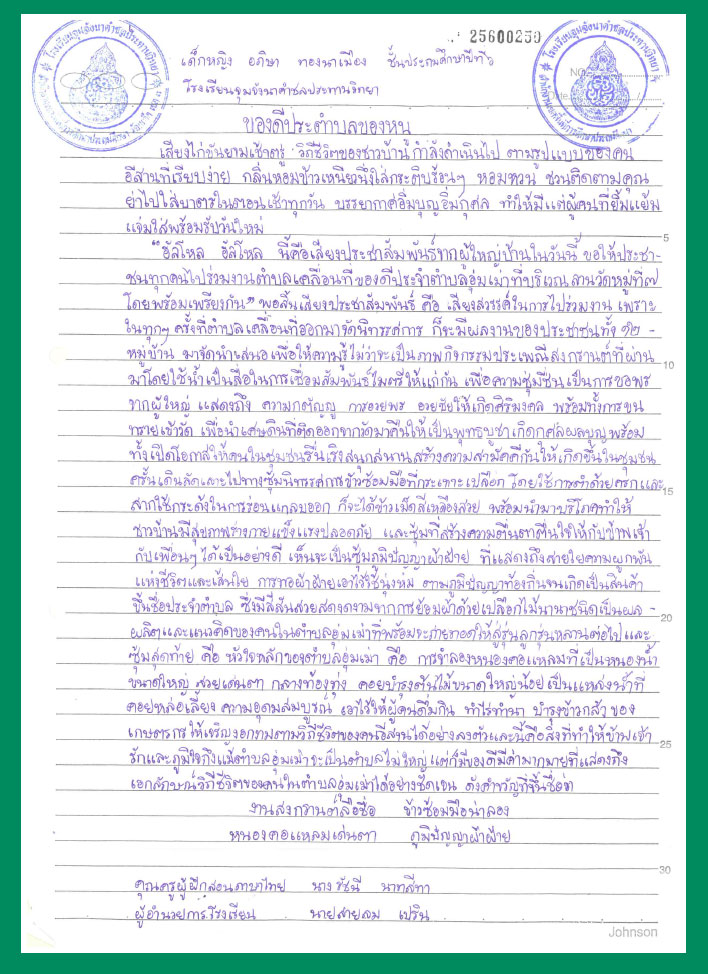 25600250
เด็กหญิง อภิษา ทองนาเมือง ชั้นประถมศึกษาปีที่ ๖
โรงเรียนชุมชนาคำชลประทานวิทยา
ของดีประจำตำบลของหนู
เสียงไก่ขันยามเช้าตรู่ วิถีชีวิตของชาวบ้านกำลังดำเนินไป ตามรูปแบบของคน
อีสานที่เรียบง่าย กลิ่นหอมข้าวเหนียวนึ่งใส่กระติบร้อนๆ หอมหวน ชวนติดตามคุณ
ย่าไปใส่บาตรในตอนเช้าทุกวัน บรรยากาศอิ่มบุญอิ่มกุศล ทำให้มีแต่ผู้คนที่ยิ้มแย้ม
แจ่มใสพร้อมรับวันใหม่
5
"ฮัลโหล ฮัลโหล นี้คือเสียงประชาสัมพันธ์จากผู้ใหญ่บ้านในวันนี้ ขอให้ประชา-
ชนทุกคนไปร่วมงานตำบลเคลื่อนที่ของดีประจำตำบลอุ่มเม่าที่บริเวณลานวัดหมู่ที่๗
โดยพร้อมเพรียงกัน" พอสิ้นเสียงประชาสัมพันธ์ คือ เสียงสวรรค์ในการไปร่วมงาน เพราะ
ในทุกๆ ครั้งที่ตำบลเคลื่อนที่ออกมาจัดนิทรรศการ ก็จะมีผลงานของประชาชนทั้ง ๑๒ -
หมู่บ้าน มาจัดนำเสนอเพื่อให้ความรู้ไม่ว่าจะเป็นภาพกิจกรรมประเพณีสงกรานต์ที่ผ่าน
10
มาโดยใช้น้ำเป็นสื่อในการเชื่อมสัมพันธ์ไมตรีให้แก่กัน เพื่อความชุ่มชื่นเป็นการขอพร
จากผู้ใหญ่ แสดงถึง ความกตัญญู การอวยพร อวยชัยให้เกิดศิริมงคล พร้อมทั้งการขน
ทรายเข้าวัด เพื่อนำเศษดินที่ติดออกจากวัดมาคืนให้เป็นพุทธบูชาเกิดกุศลผลบุญพร้อม
ทั้งเปิดโอกาสให้คนในชุมชนรื่นเริงสนุกสนานสร้างความสามัคคีกันให้เกิดขึ้นในชุมชน
ครั้นเดินลัดเลาะไปทางซุ้มนิทรรศการข้าวซ้อมมือที่กระเทาะเปลือก โดยใช้การตำด้วยครกและ
15
สากใช้กระด้งในการร่อนแกลบออก ก็จะได้ข้าวเม็ดสีเหลืองสวย พร้อมนำมาบริโภคทำให้
ชาวบ้านมีสุขภาพร่างกายแข็งแรงปลอดภัย และซุ้มที่สร้างความตื่นตาตื่นใจให้กับข้าพเจ้า
กับเพื่อนๆ ได้เป็นอย่างดี เห็นจะเป็นซุ้มภูมิปัญญาผ้าฝ้าย ที่แสดงถึงสายใยความผูกพัน
แห่งชีวิตและเส้นใย การทอผ้าฝ้ายเอาไว้ใช้นุ่งห่ม ตามภูมิปัญญาท้องถิ่นจนเกิดเป็นสินค้า
ขึ้นชื่อประจำตำบล ซึ่งมีสีสันสวยสดงดงามจากการย้อมผ้าด้วยเปลือกไม้นานาชนิดเป็นผล -
20
ผลิตและแนวคิดของคนในตำบลอุ่มเม่าที่พร้อมจะถ่ายทอดให้สู่รุ่นลูกรุ่นหลานต่อไปและ
ซุ้มสุดท้าย คือ หัวใจหลักของตำบลอุ่มเม่า คือ การจำลองหนองคอแหลมที่เป็นหนองน้ำ
ขนาดใหญ่ สวยเด่นตา กลางท้องทุ่ง คอยบำรุงต้นไม้ขนาดใหญ่น้อยเป็นแหล่งน้ำที่
คอยหล่อเลี้ยง ความอุดมสมบูรณ์ เอาไว้ให้ผู้คนดื่มกิน ทำไร่ทำนา บำรุงข้าวกล้า ของ
เกษตรกรให้เจริญงอกงามตามวิถีชีวิตของคนอีสานได้อย่างลงตัวและนี้คือสิ่งที่ทำให้ข้าพเจ้า
25
รักและภูมิใจถึงแม้ตำบลอุ่มเม่าจะเป็นตำบลไม่ใหญ่ แต่ก็มีของดีมีค่ามากมายที่แสดงถึง
เอกลักษณ์วิถีชีวิตของคนในตำบลอุ่มเม่าได้อย่างชัดเจน ดังคำขวัญที่ขึ้นชื่อว่า
งานสงกรานต์ลือชื่อ ข้าวซ้อมมือน่าลอง
หนองคอแหลมเด่นตา ภูมิปัญญาผ้าฝ้าย
30
คุณครูผู้ฝึกสอนภาษาไทย นาง รัชนี นาทสีทา
ผู้อำนวยการโรงเรียน นายสายลม เปริน
Johnson